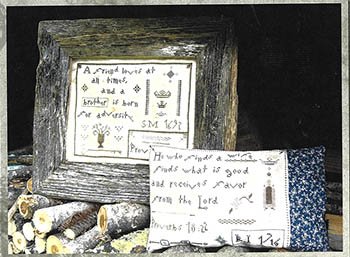 A friend loves at
all times,
and a
brother is born
for adversity
Prov
He who finds a wife
finds what is good
and receives favor
from the Lord
Proverbs 18:22